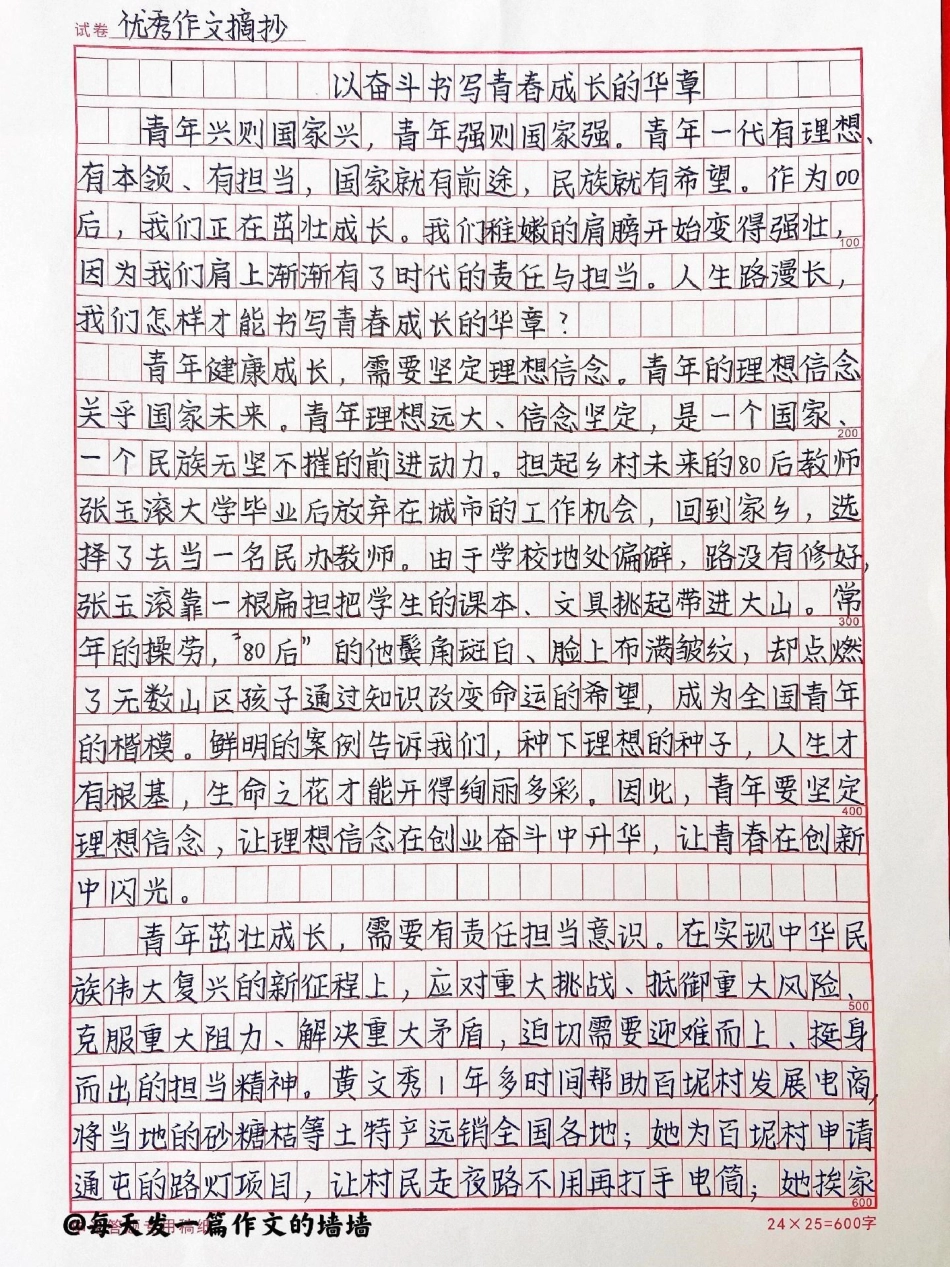 试卷 优秀作文摘抄
以奋斗书写青春成长的华章
青年兴则国家兴，青年强则国家强。青年一代有理想、
有本领、有担当，国家就有前途，民族就有希望。作为00
后，我们正在茁壮成长。我们稚嫩的肩膀开始变得强壮，
100
因为我们肩上渐渐有了时代的责任与担当。人生路漫长，
我们怎样才能书写青春成长的华章？
青年健康成长，需要坚定理想信念。青年的理想信念
关乎国家未来。青年理想远大、信念坚定，是一个国家、
200
一个民族无坚不摧的前进动力。担起乡村未来的80后教师
张玉滚大学毕业后放弃在城市的工作机会，回到家乡，选
择了去当一名民办教师。由于学校地处偏僻，路没有修好，
张玉滚靠一根扁担把学生的课本、文具挑起带进大山。常
300
年的操劳，“80后”的他鬓角斑白、脸上布满皱纹，却点燃
了无数山区孩子通过知识改变命运的希望，成为全国青年
的楷模。鲜明的案例告诉我们，种下理想的种子，人生才
有根基，生命之花才能开得绚丽多彩。因此，青年要坚定
400
理想信念，让理想信念在创业奋斗中升华，让青春在创新
中闪光。
青年茁壮成长，需要有责任担当意识。在实现中华民
族伟大复兴的新征程上，应对重大挑战、抵御重大风险、
500
克服重大阻力、解决重大矛盾，迫切需要迎难而上、挺身
而出的担当精神。黄文秀1年多时间帮助百坭村发展电商，
将当地的砂糖桔等土特产远销全国各地；她为百坭村申请
通屯的路灯项目，让村民走夜路不用再打手电筒；她挨家
600
@每天发一篇作文的墙墙
24×25=600字